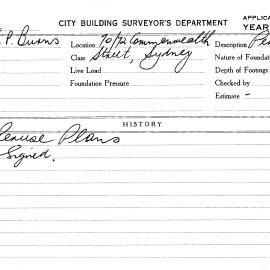 CITY BUILDING SURVEYOR'S DEPARTMENT
APPLICA
YEAR
P. Burns
Location 70/72 Commonwealth
Class Street, Sydney
Live Load
Foundation Pressure
Description
Nature of Foundat
Depth of Footings
Checked by
Estimate -
HISTORY
Plans
Signed.